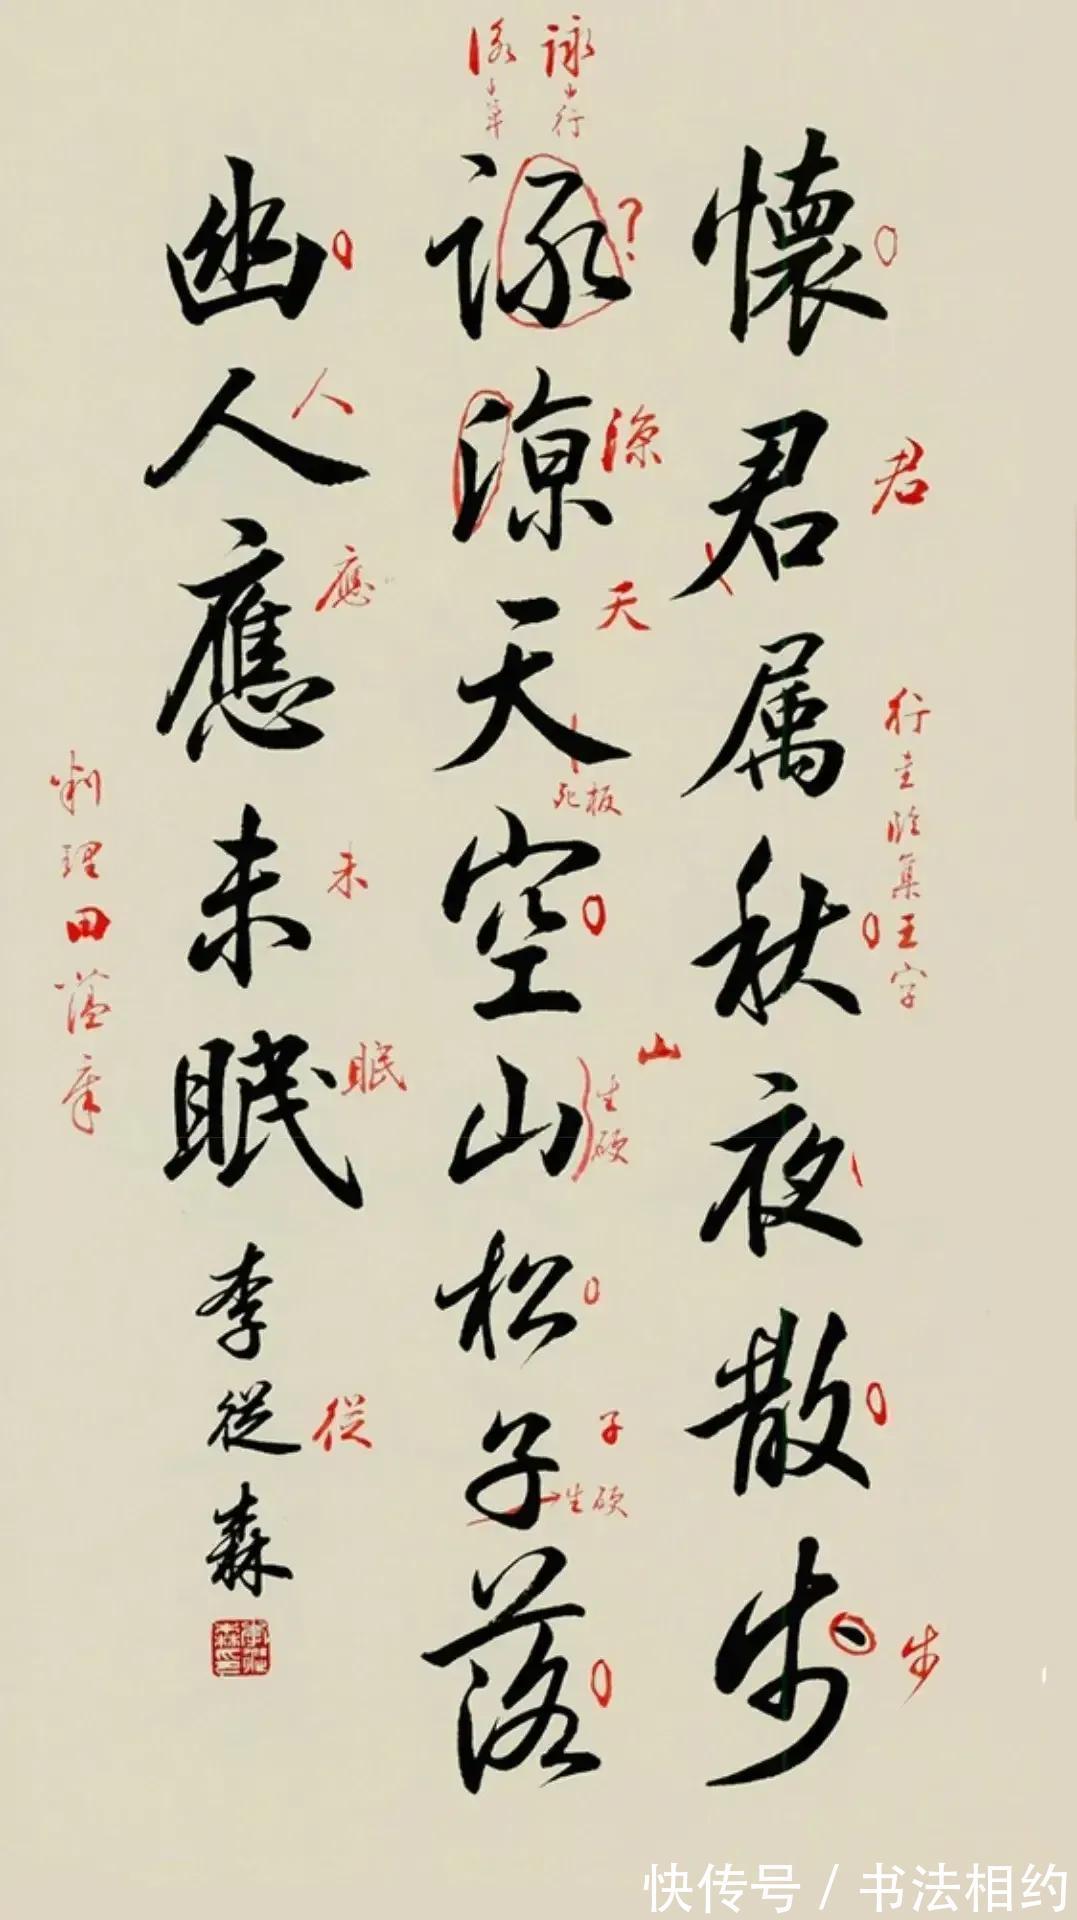 懷君属秋夜散步
詠涼天空山松子落
幽人應未眠
李從森
詠 行
詠 草
？
君
涼
天
死板
行
集王字
山
生硬
子
生硬
步
人
應
未
眠
從
田蕴章
快传号 / 书法相约